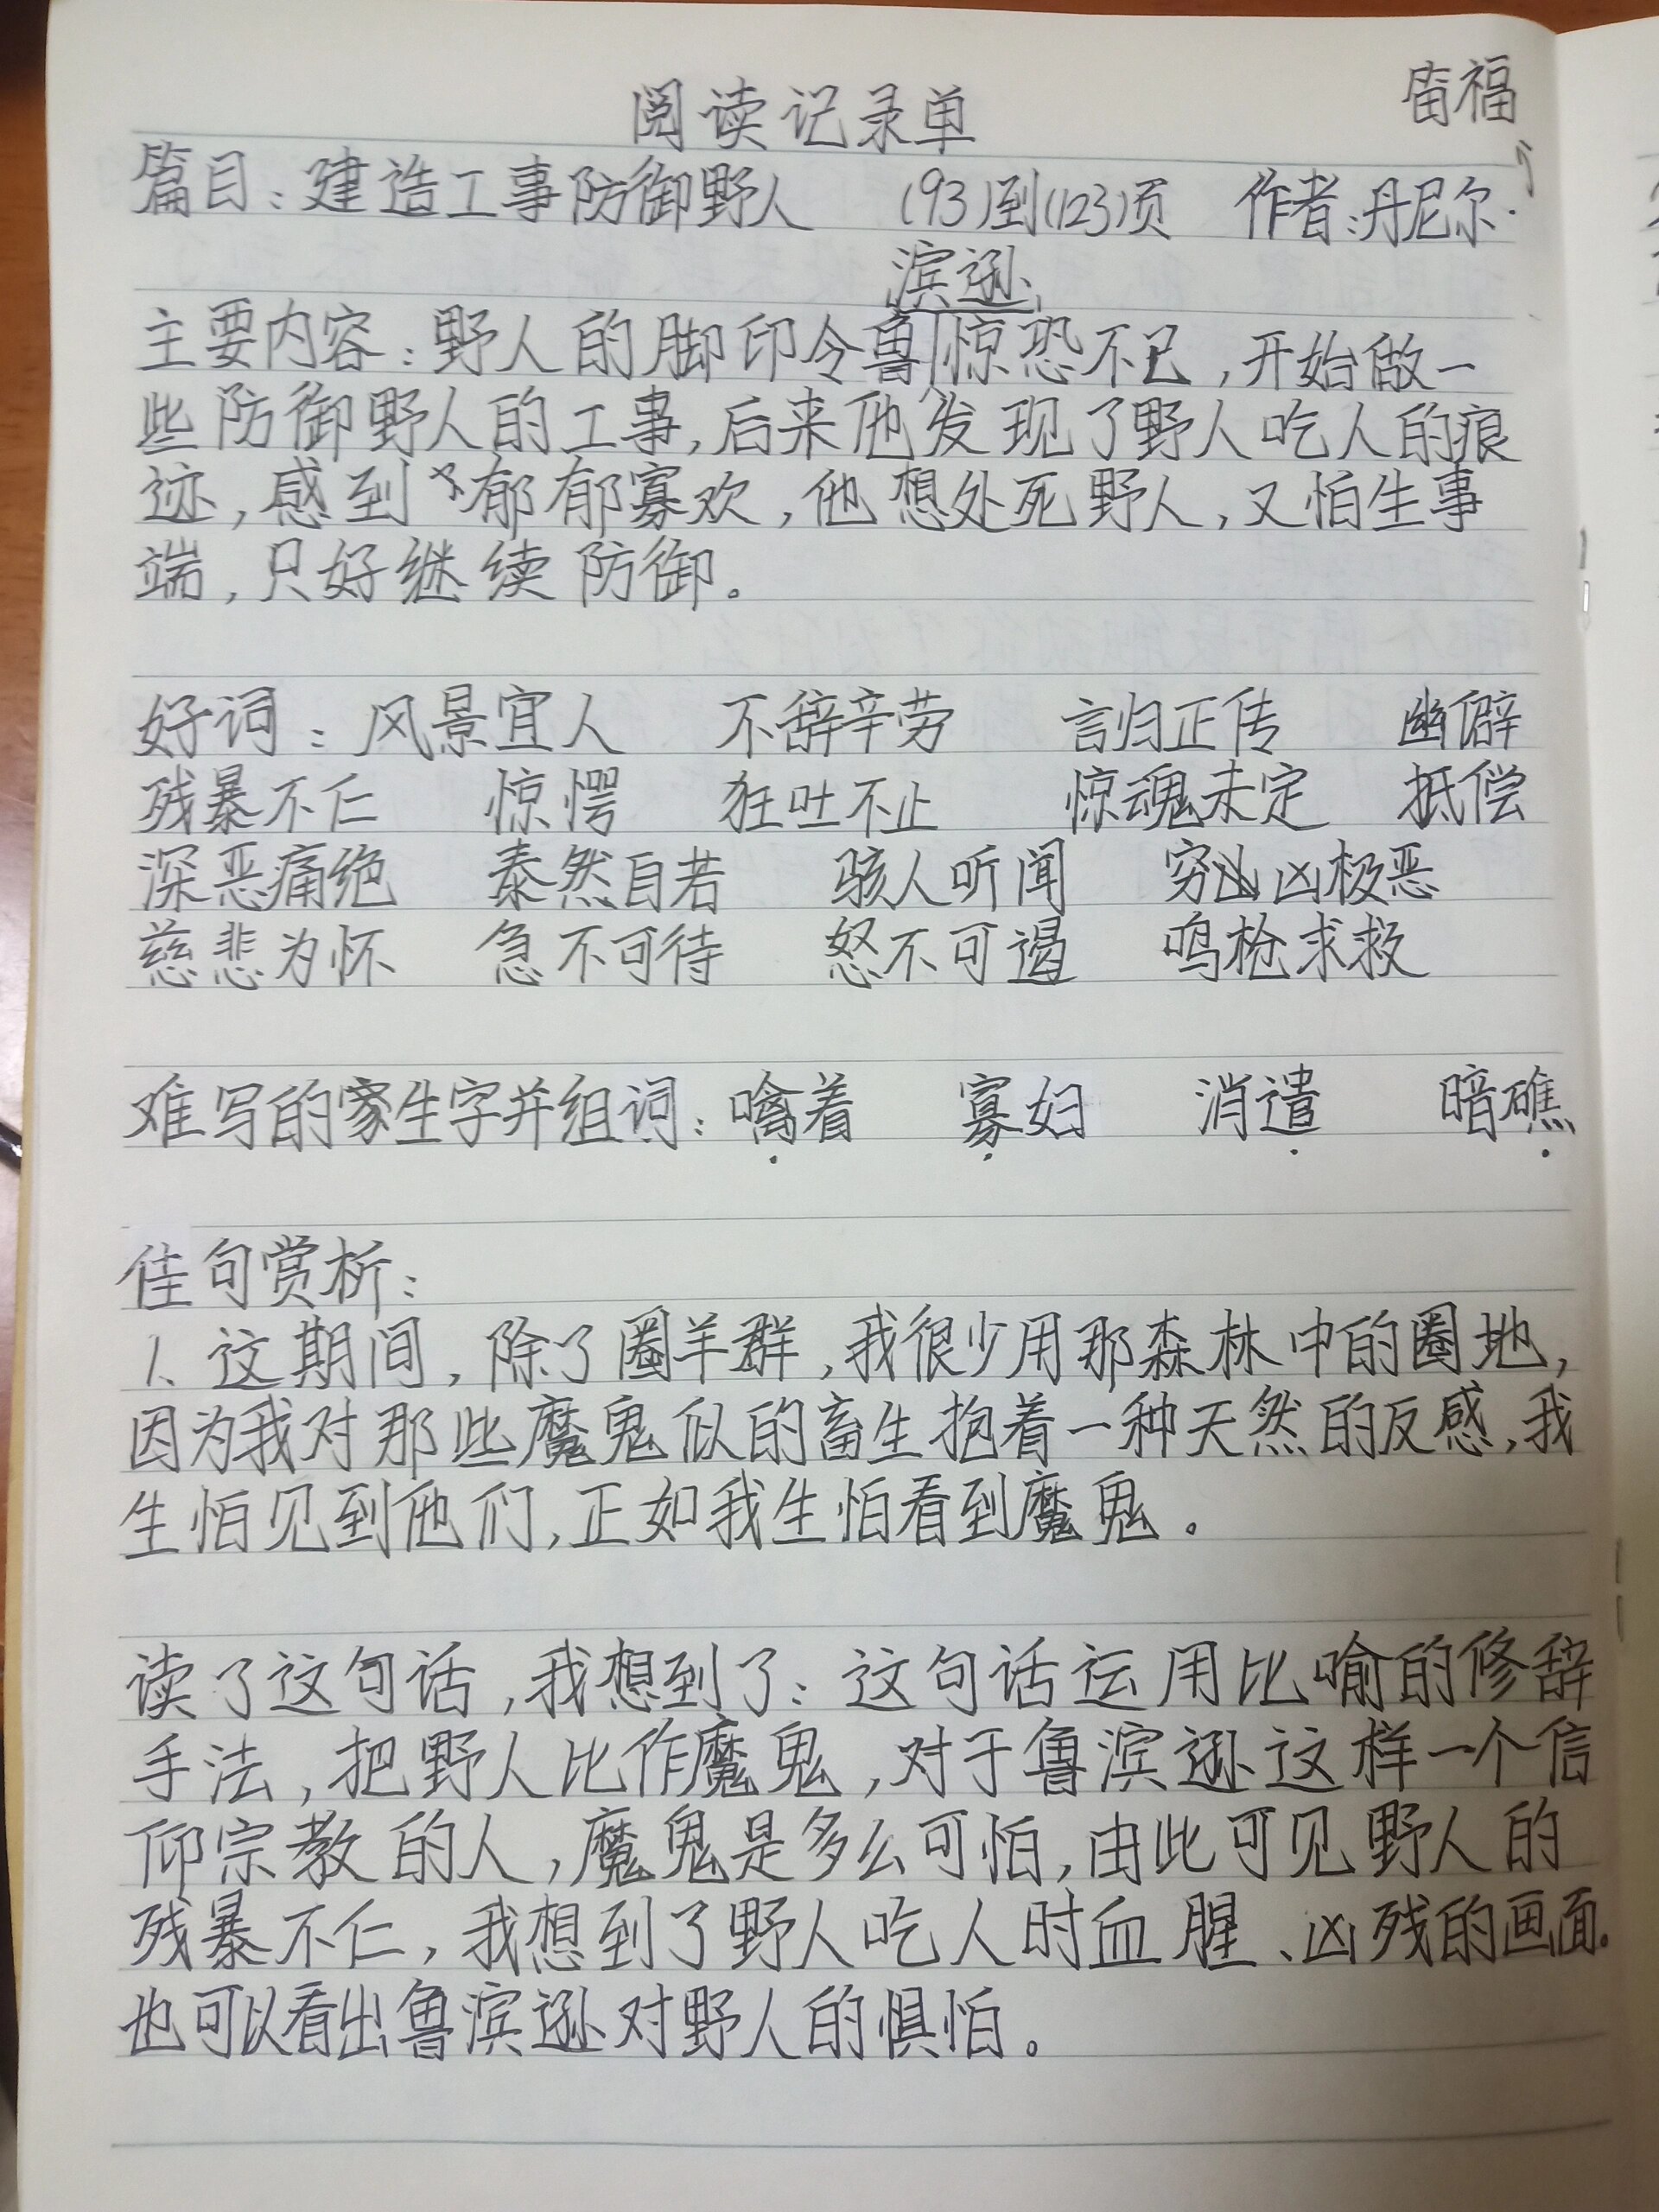 阅读记录单
笛福
篇目：建造工事防御野人 (93)到(123)页 作者：丹尼尔·
滨逊
主要内容：野人的脚印令鲁惊恐不已，开始做一
些防御野人的工事，后来他发现了野人吃人的痕
迹，感到郁郁寡欢，他想处死野人，又怕生事
端，只好继续防御。
好词：风景宜人 不辞辛劳 言归正传 幽僻
残暴不仁 惊愕 狂吐不止 惊魂未定 抵偿
深恶痛绝 泰然自若 骇人听闻 穷凶极恶
慈悲为怀 急不可待 怒不可遏 鸣枪求救
难写的生字并组词：噙着 寡妇 消遣 暗礁
佳句赏析：
1、这期间，除了圈羊群，我很少用那森林中的圈地，
因为我对那些魔鬼似的畜生抱着一种天然的反感，我
生怕见到他们，正如我生怕看到魔鬼。
读了这句话，我想到了：这句话运用比喻的修辞
手法，把野人比作魔鬼，对于鲁滨逊这样一个信
仰宗教的人，魔鬼是多么可怕，由此可见野人的
残暴不仁，我想到了野人吃人时血腥、凶残的画面。
也可以看出鲁滨逊对野人的惧怕。